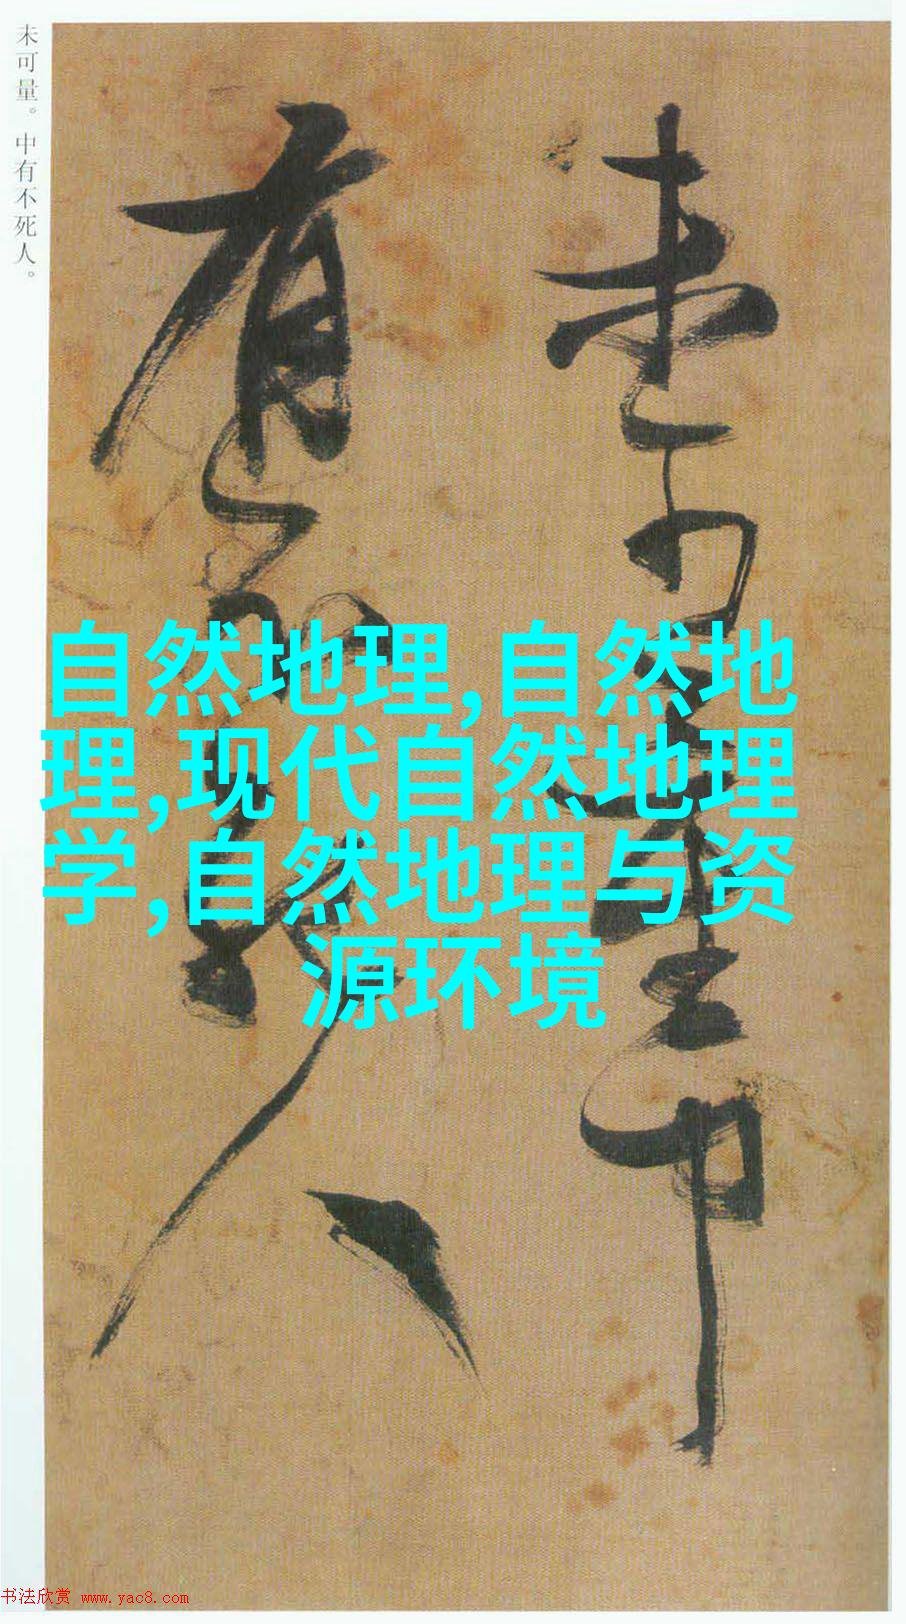 未可量。中有不死人。
未可量中
有不死人
自然地理,自然地
理,现代自然地理
学,自然地理与资
源环境
书法欣赏 www.yac8.com